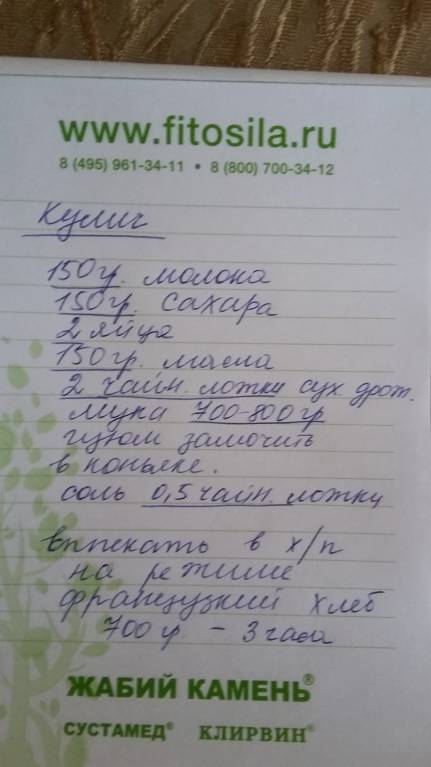 www.fitosila.ru
8 (495) 961-34-11 • 8 (800) 700-34-12
Кулич
150гр. молока
150гр. сахара
2 яйца
150гр. масла
2 чайн. ложки сух. дрож.
мука 700-800гр
изюм замочить
в коньяке.
соль 0,5 чайн. ложки
выпекать в х/п
на режиме
французкий хлеб
700гр. - 3 часа
ЖАБИЙ КАМЕНЬ®
СУСТАМЕД® КЛИРВИН®